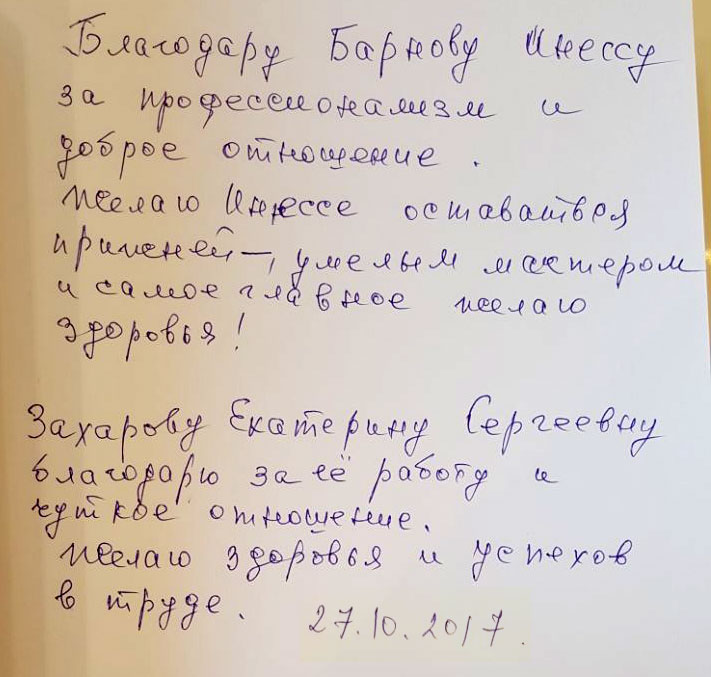 Благодару Барнову Инессу
за профессионализм и
доброе отнощение.
Желаю Инессе оставаться
умелым мастером
и самое главное желаю
здоровья!
Захарову Екатерину Сергеевну
благодарю за её работу и
чуткое отношение.
Желаю здоровья и успехов
в труде. 27.10.2017.